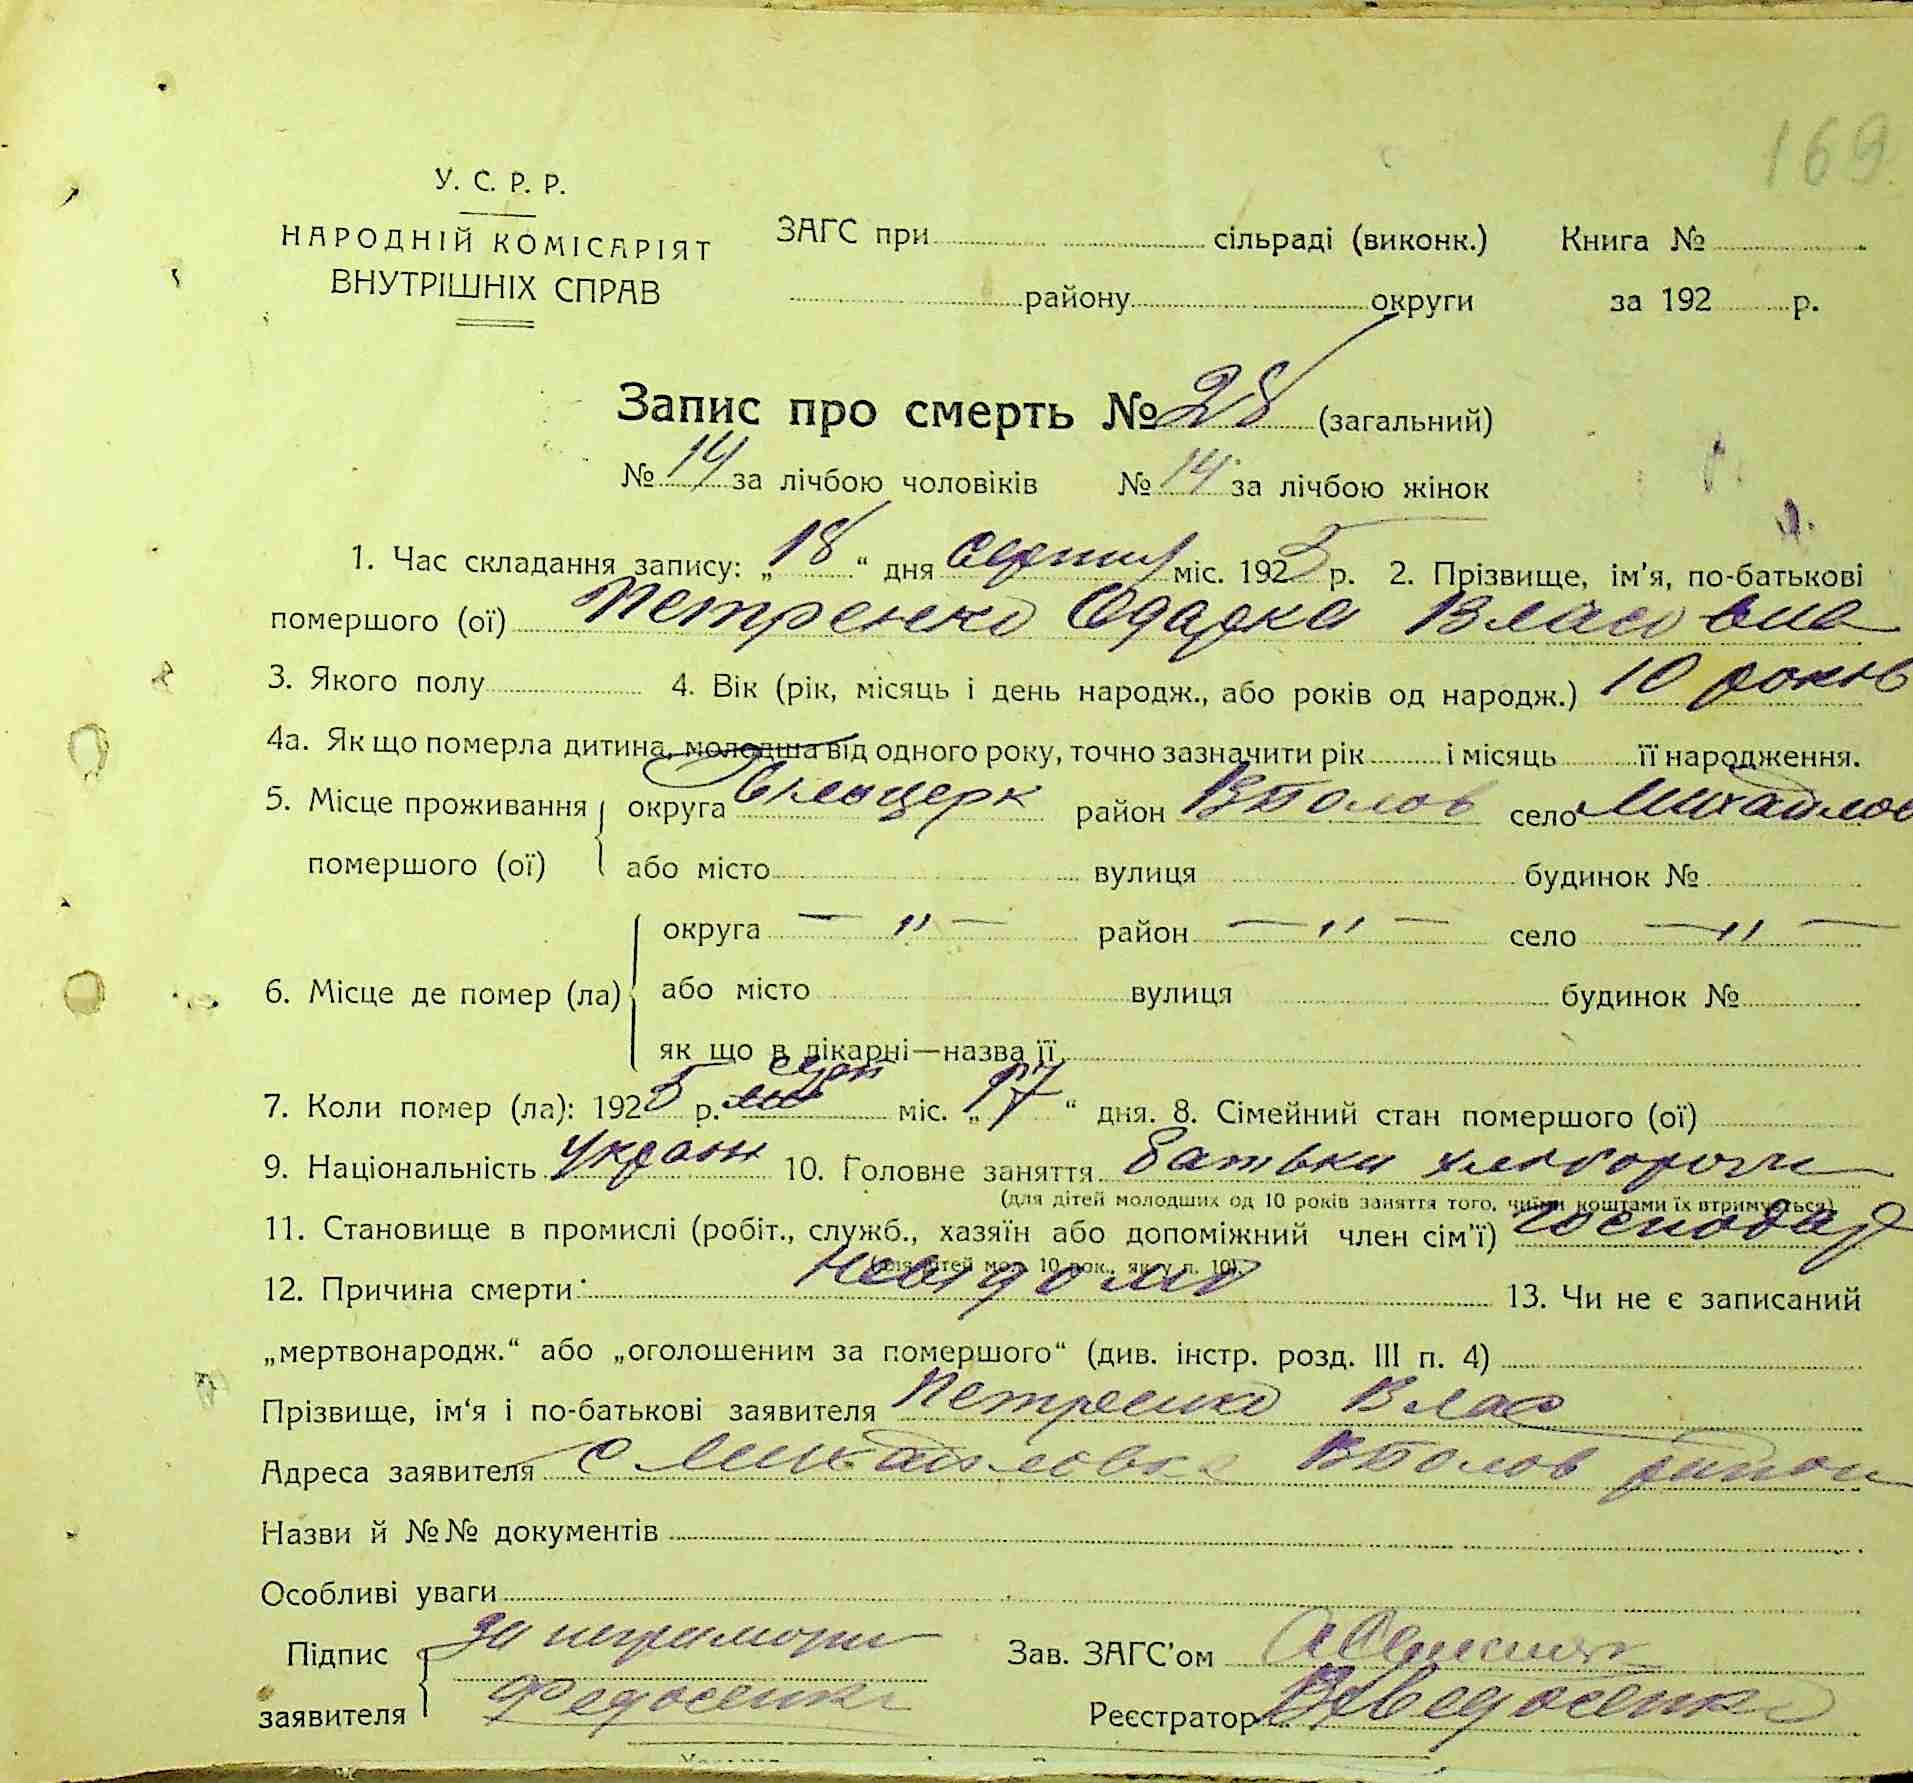 169
У. С. Р. Р.
НАРОДНІЙ КОМІСАРІЯТ
ВНУТРІШНІХ СПРАВ
ЗАГС при сільраді (виконк.) Книга №
району округи за 192 р.
Запис про смерть № 28 (загальний)
№ 14 за лічбою чоловіків № 14 за лічбою жінок
1. Час складання запису: „18“ дня серпня міс. 1925 р. 2. Прізвище, ім'я, по-батькові
помершого (ої) Петренко Одарка Власовна
3. Якого полу 4. Вік (рік, місяць і день народж., або років од народж.) 10 років
4а. Як що померла дитина, молодша від одного року, точно зазначити рік і місяць її народження.
5. Місце проживання округа Білоцерк район ВПолов село Михайлов
помершого (ої) або місто вулиця будинок №
округа — " — район — " — село — " —
6. Місце де помер (ла) або місто вулиця будинок №
як що в лікарні—назва її
серп
7. Коли помер (ла): 1925 р. міс. „17“ дня. 8. Сімейний стан помершого (ої)
9. Національність Україн 10. Головне заняття батьки хлібороби
(для дітей молодших од 10 років заняття того, чиїми коштами їх втримується)
11. Становище в промислі (робіт., служб., хазяїн або допоміжний член сім'ї) господар
(для дітей мол. 10 рок., як у п. 10).
12. Причина смерти невідомо 13. Чи не є записаний
„мертвонародж.“ або „оголошеним за помершого“ (див. інстр. розд. III п. 4)
Прізвище, ім'я і по-батькові заявителя Петренко Влас
Адреса заявителя с Михайловка ВПолов район
Назви й №№ документів
Особливі уваги
Підпис за неграмотн Зав. ЗАГС'ом
заявителя Федосенко Реєстратор